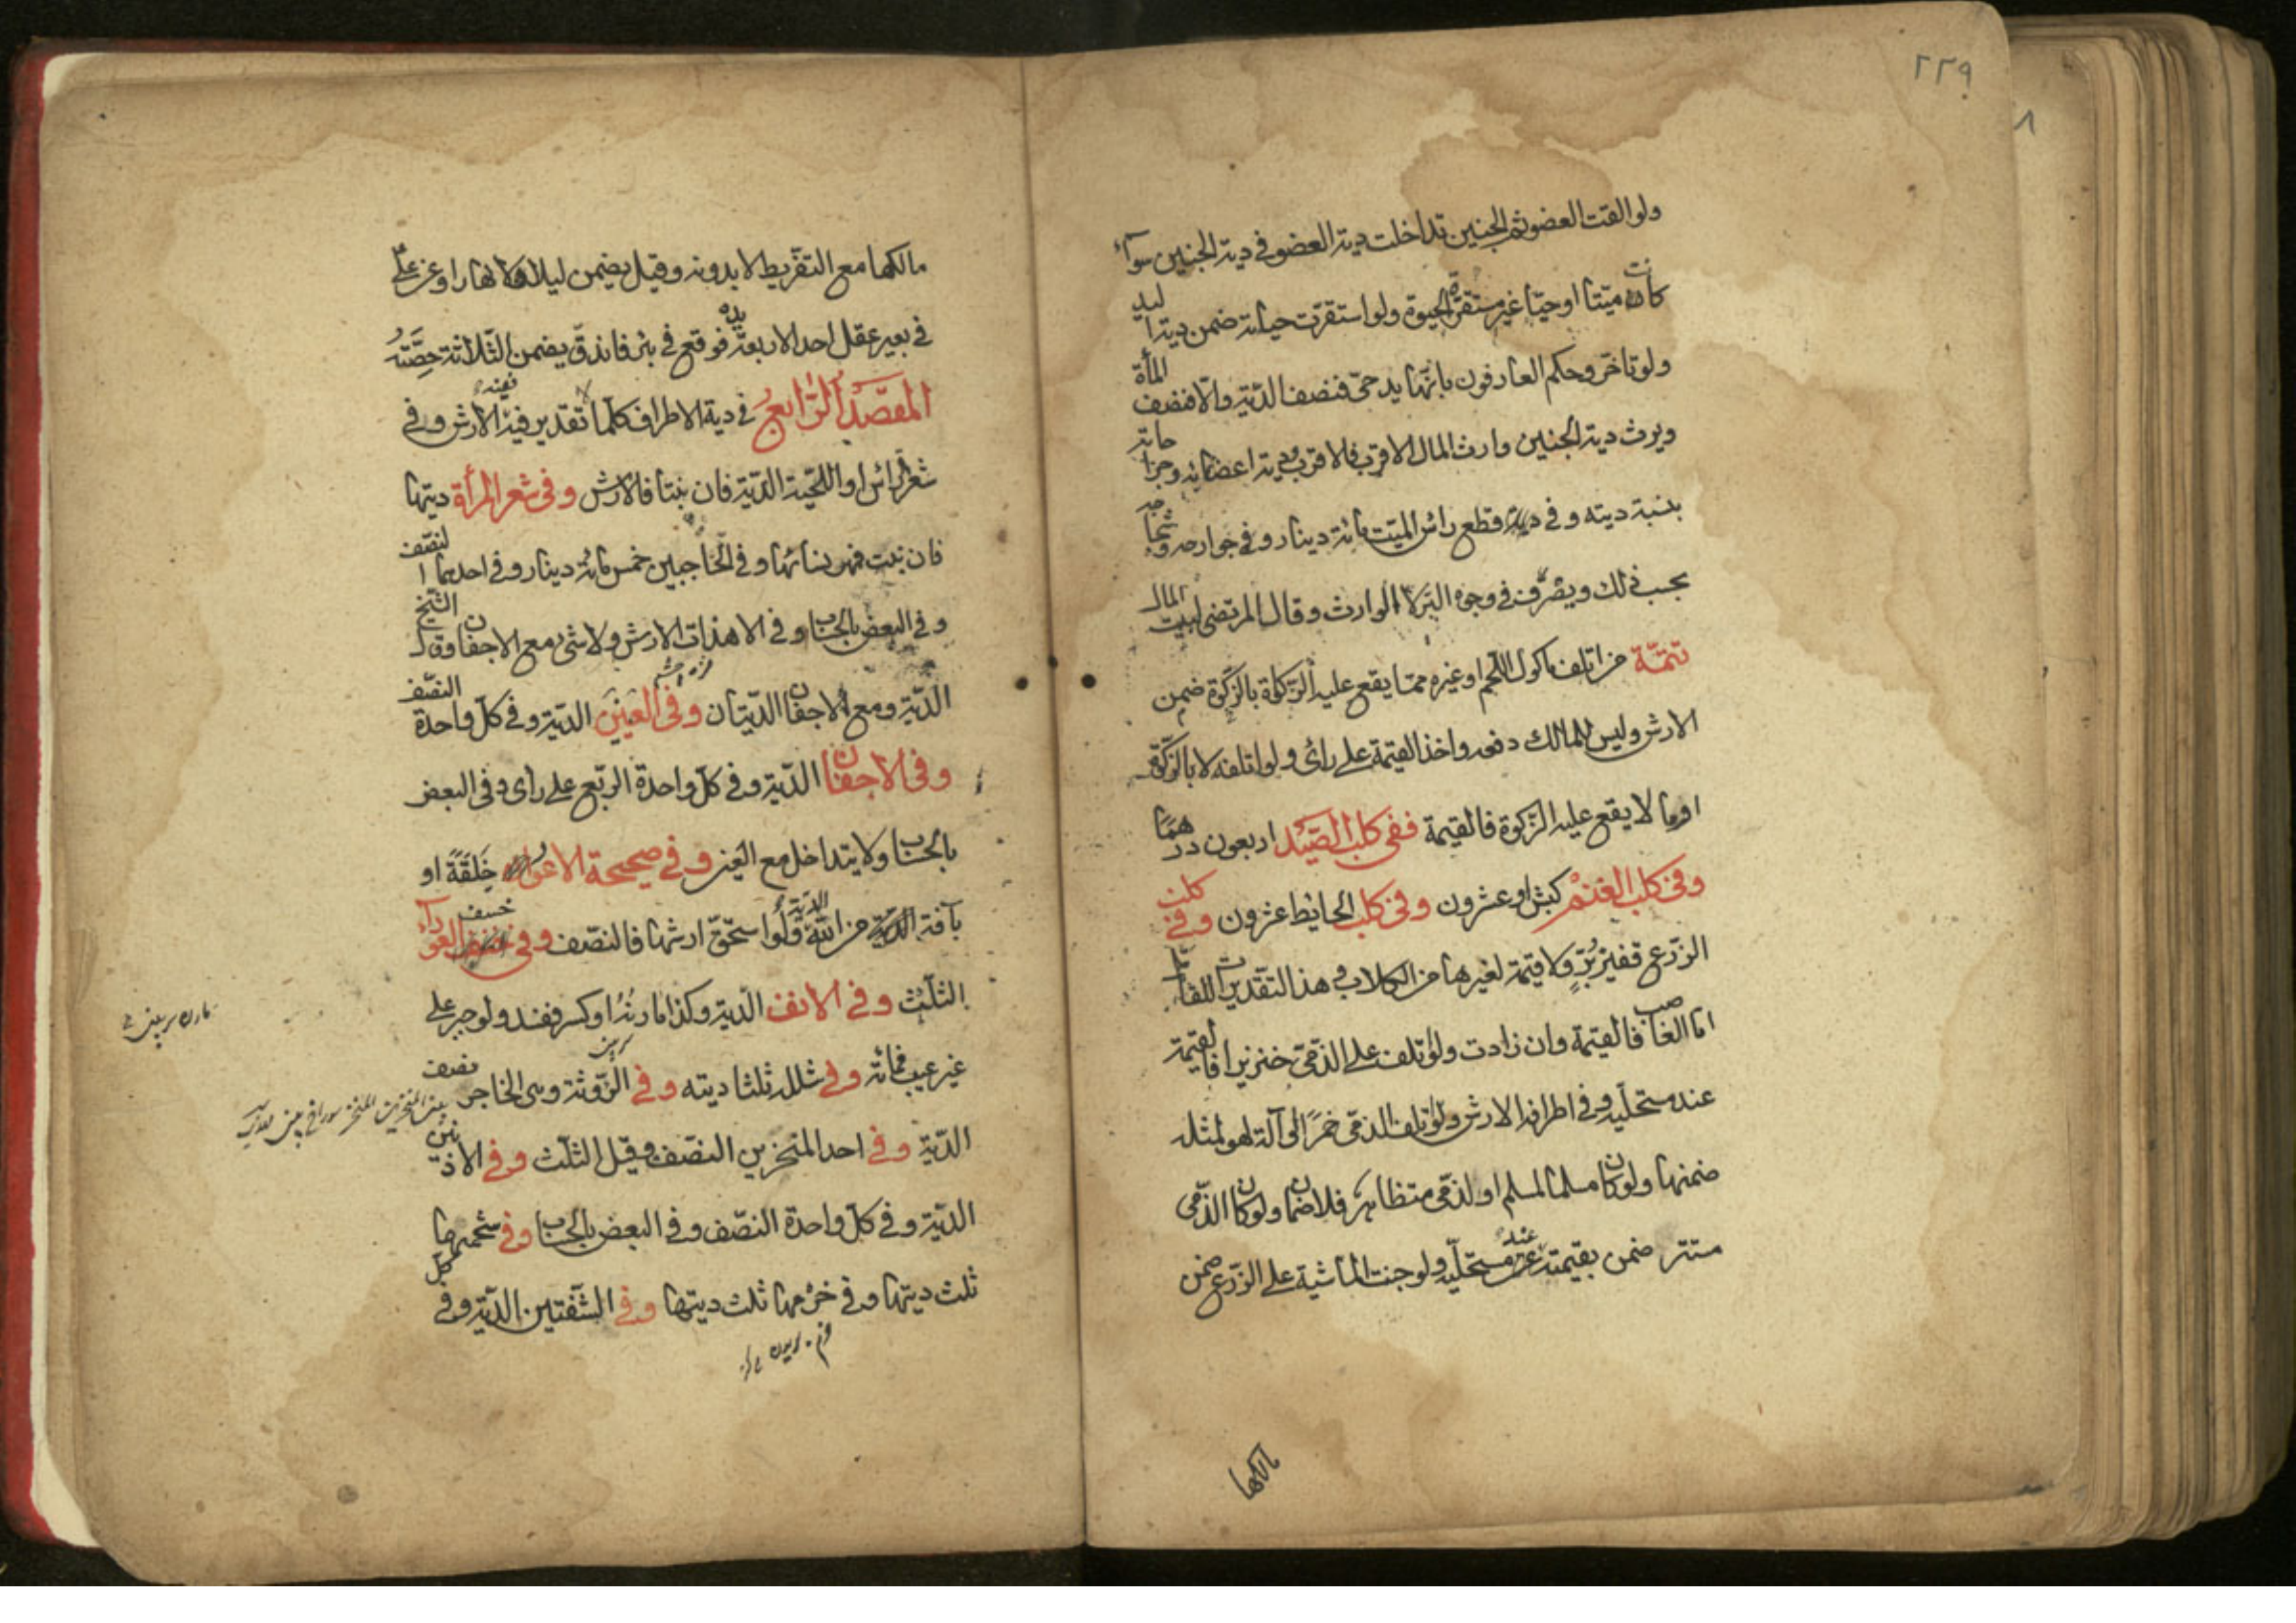 ٢٢٩
٨
ولو القت العضو ثم الجنين تداخلت دية العضو في دية الجنين سوآء
كانت ميّتا او حيّا غير مستقرّة الحيوة ولو استقرّت حياته ضمن دية اليد
ولو تاخّر وحكم العارفون بانّها يد حىّ فنصف الدّية والّا فنصف المأة
ويرث دية الجنين وارث المال الاقرب فالاقرب ودية اعضائه وجراحاته
بنسبة ديته وفي قطع رائس الميّت مائة دينار وفي جوارحه وشجاجه
بحسب ذلك ويصرف في وجوه البرّ لا الوارث وقال المرتضى لبيت المال
تتمّة من اتلف ماكول اللّحم او غيره ممّا يقع عليه الزّكاة بالزّكوة ضمن
الارش وليس للمالك دفعه واخذ القيمة على رأى ولو اتلفه لا بالزّكوة
او ما لا يقع عليه الزّكوة فالقيمة ففي كلب الصّيد اربعون درهمًا
وفي كلب الغنم كبش او عشرون وفي كلب الحايط عشرون وفي كلب
الزّرع قفيز برّ ولا قيمة لغيرها من الكلاب وهذا التقديرات للقاتل
امّا الغاصب فالقيمة وان زادت ولو اتلف على الذمّىّ خنزيرا فالقيمة
عند مستحلّيه وفي اطرافه الارش ولو اتلف الذمّى خمرًا او آلة لهو لمثله
ضمنها ولو كان مسلما لمسلم او لذمّى متظاهر فلا ضمان ولو كان الذّمّى
مستتر ضمن بقيمته عند مستحلّيه ولو جنت الماشية على الزّرع ضمن
مالكها
مالكها مع التفريط لا بدونه وقيل يضمن ليلا لا نهارا وعن علىّ
في بعير عقل احد الاربعة يده فوقع في بئر فاندقّ يضمن الثّلاثة حِصَّتَهُ
المقصد الرّابع في دية الاطراف كلّما لا تقدير فيه ففيه الارش وفي
شعر الرّائس او اللّحية الدّية فان نبتا فالارش وفي شعر المرأة ديتها
فان نبت فمهر نسائها وفي الحاجبين خمس مائة دينار وفي احدهما النّصف
وفي البعض بالحساب وفي الاهداب الارش ولا شىء مع الاجفان وقال الشّيخ
الدّية ومع الاجفان الدّيتان وفي العينين الدّية وفي كلّ واحدة النّصف
وفي الاجفان الدّية وفي كلّ واحدة الرّبع على راى وفي البعض
بالحساب ولا يتداخل مع العين وفي صحيحة الاعور خَلقَةً او
بآفة من الله الدّية ولو استحقّ ارشها فالنصّف وفي خسف العورآء
الثلث وفي الانف الدّية وكذا مارنه او كسر ففسد ولو جبر على
غير عيب فمائة وفي شلله ثلثا ديته وفي الرّوثة وهى الحاجز نصف
الدّية وفي احد المنخرين النصّف وقيل الثلث وفي الاذنين
الدّية وفي كلّ واحدة النصّف وفي البعض بالحساب وفي شحمتها
ثلث ديتها وفي خرمها ثلث ديتها وفي الشّفتين الدّية وفي كلّ